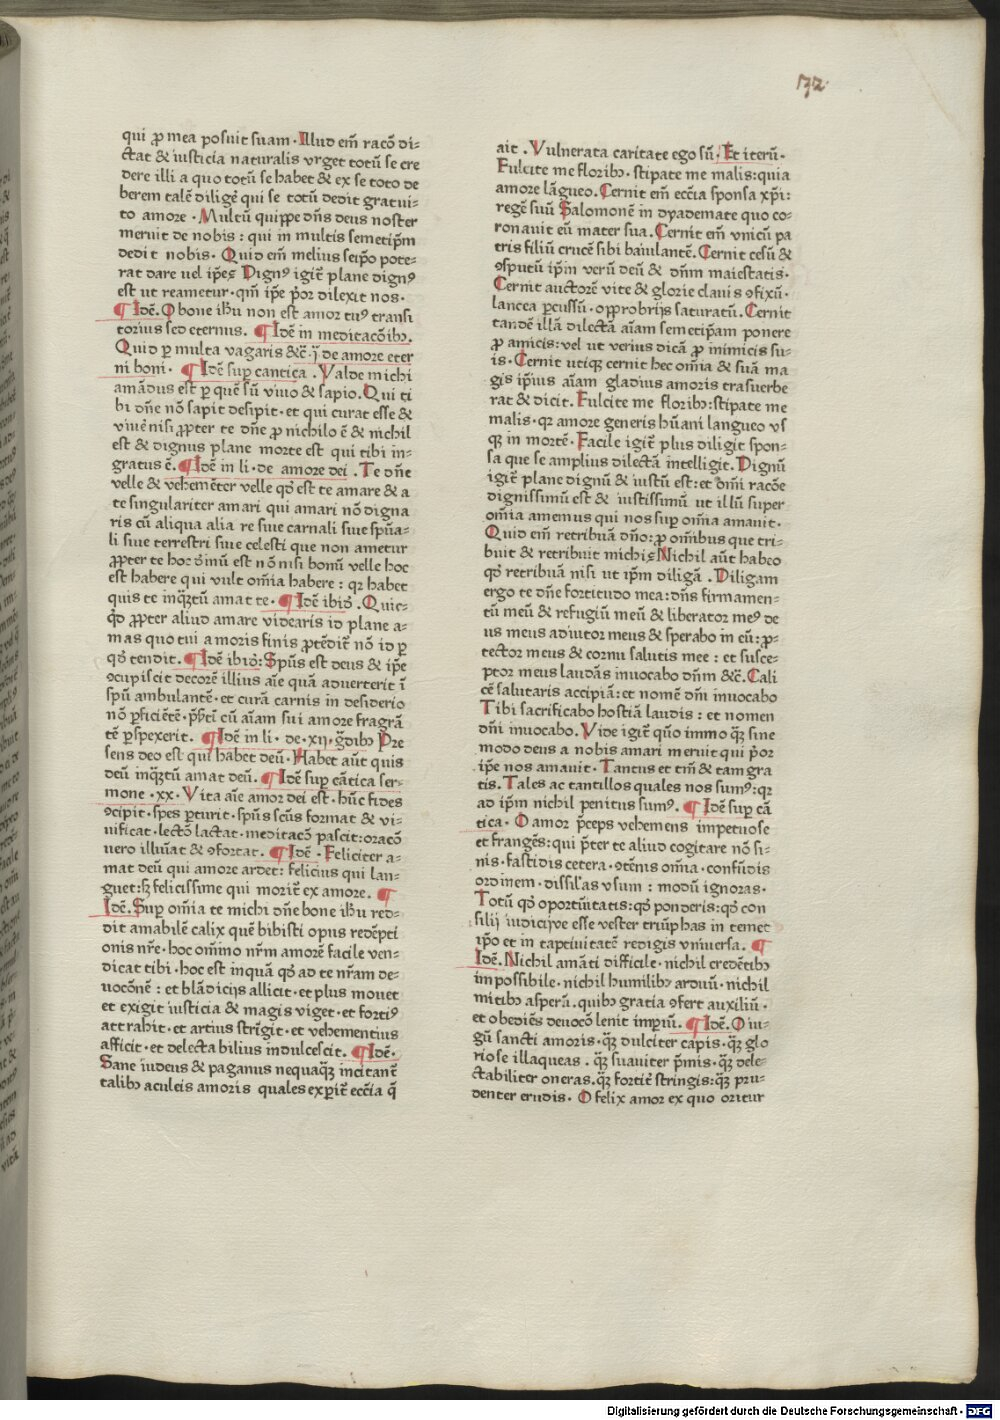 172
qui ꝓ mea posuit suam. Illud em̄ racō di⸗
ctat & iusticia naturalis vrget totū se cre
dere illi a quo totū se habet & ex se toto de
berem talē diligē qui se totū dedit gratui⸗
to amore. Multū quippe dn̄s deus noster
meruit de nobis : qui in multis semetip̄m
dedit nobis. Quid em̄ melius seip̄o pote⸗
rat dare uel ip̄e? Dignꝰ igit̄ plane dignꝰ
est ut reametur. qm̄ ip̄e p̄or dilexit nos.
¶ Idē. O bone ih̄u non est amor tuꝰ transi
torius sed eternus. ¶ Idē in meditacōibꝫ.
Quid ꝑ multa vagaris &c̄. ij de amore eter
ni boni. ¶ Idē suꝑ cantica. Valde michi
amādus est ꝑ que sū viuo & sapio. Qui ti
bi dn̄e nō sapit desipit. et qui curat esse &
viuē nisi ꝓpter te dn̄e ꝓ nichilo ē & nichil
est & dignus plane morte est qui tibi in⸗
gratus ē. ¶ Idē in li. de amore dei. Te dn̄e
velle & vehemēter velle qd̓ est te amare & a
te singulariter amari qui amari nō digna
ris cū aliqua alia re siue carnali siue spūa⸗
li siue terrestri siue celesti que non ametur
ꝓpter te hoc oīmū est nō nisi bonū velle hoc
est habere qui vult om̄ia habere : qꝛ habet
quis te inq̄ꝫtū amat te. ¶ Idē ibid̓. Quic⸗
q̄d ꝓpter aliud amare videaris id plane a⸗
mas quo tui amoris finis p̄tēdit̄ nō id ꝑ
qd̓ tendit. ¶ Idē ibid̓: Spūs est deus & ip̄e
ꝯcupiscit decorē illius aīe quā aduerterit ī
spū ambulantē. et curā carnis in desiderio
nō ꝑficiētē. p̄s̄tī cū aīam sui amore fragrā
tē ꝑspexerit. ¶ Idē in li. de. xij. gͣdibꝫ Pre
sens deo est qui habet deū. Habet aūt quis
deū inq̄ꝫtū amat deū. ¶ Idē suꝑ cātica ser⸗
mone. xx. Vita aīe amor dei est. hūc fides
ꝯcipit. spes ꝑturit. spūs scūs format & vi⸗
uificat. lectō lactat. meditacō pascit: oracō
uero illuīat & ꝯfortat. ¶ Idē. Feliciter a⸗
mat deū qui amore ardet: felicius qui lan⸗
guet: sꝫ felicissime qui morit̄ ex amore. ¶
Idē. Suꝑ om̄ia te michi dn̄e bone ih̄u red⸗
dit amabilē calix quē bibisti opus redēpti
onis nr̄e. hoc om̄ino nr̄m amorē facile ven⸗
dicat tibi. hoc est inquā qd̓ ad te nr̄am de⸗
uocōnē : et blādicijs allicit. et plus mouet
et exigit iusticia & magis viget. et fortiꝰ
attrahit. et artius strīgit. et vehementius
afficit. et delecta bilius indulcescit. ¶ Idē.
Sane iudeus & paganus nequaq̄ꝫ incitant̄
talibꝫ aculeis amoris quales exꝑit̄ eccīa q̄
ait. Vulnerata caritate ego sū. Et iterū.
Fulcite me floribꝫ. stipate me malis: quia
amore lāgueo. Cernit em̄ eccīa sponsa xp̄i:
regē suū Salomonē in dyademate quo co⸗
ronauit eū mater sua. Cernit em̄ vnicū pa
tris filiū crucē sibi baiulantē. Cernit cesū &
ꝯsputū ip̄m verū deū & dn̄m maiestatis.
Cernit auctorē vite & glorie clauis ꝯfixū.
lancea ꝑcussū. opprobrijs saturatū. Cernit
tandē illā dilectā aīam semetip̄am ponere
ꝓ amicis: vel ut verius dicā ꝓ inimicis su⸗
is. Cernit utiqꝫ cernit hec om̄ia & suā ma
gis ip̄ius aīam gladius amoris trasuerbe
rat & dicit. Fulcite me floribꝫ: stipate me
malis. qꝛ amore generis hūani langueo vs
qꝫ in mortē. Facile igit̄ plus diligit spon⸗
sa que se amplius dilectā intelligit. Dignū
igit̄ plane dignū & iustū est: et oīmi racōe
dignissimū est & iustissimū ut illū super
om̄ia amemus qui nos suꝑ om̄ia amauit.
Quid em̄ retribuā dn̄o: ꝓ om̄ibus que tri⸗
buit & retribuit michi? Nichil aūt habeo
qd̓ retribuā nisi ut ip̄m diligā. Diligam
ergo te dn̄e fortitudo mea: dn̄s firmamen⸗
tū meū & refugiū meū & liberator meꝰ de
us meus adiutor meus & sperabo in eū: ꝓ⸗
tector meus & cornu salutis mee : et susce⸗
ptor meus laudās inuocabo dn̄m &c̄. Cali
cē salutaris accipiā: et nomē dn̄i inuocabo
Tibi sacrificabo hostiā laudis : et nomen
dn̄i inuocabo. Vide igit̄ qūo immo qꝫ sine
modo deus a nobis amari meruit qui p̄or
ip̄e nos amauit. Tantus et tm̄ & tam gra
tis. Tales ac tantillos quales nos sumꝰ: qꝛ
ad ip̄m nichil penitus sumꝰ. ¶ Idē suꝑ cā
tica. O amor p̄ceps vehemens impetuose
et frangēs: qui p̄ter te aliud cogitare nō si⸗
nis. fastidis cetera. ꝯtēnis om̄ia. confūdis
ordinem. dissil̓as vsum : modū ignoras.
Totū qd̓ oportūitatis: qd̓ ponderis: qd̓ con
silij iudicijve esse vester triūphas in temet
ip̄o et in captiuitatē redigis vniuersa. ¶
Idē. Nichil amāti difficile. nichil credētibꝫ
impossibile. nichil humilibꝫ arduū. nichil
mitibꝫ asperū. quibꝫ gratia ꝯfert auxiliū.
et obediēs deuocō lenit imꝑiū. ¶ Idē. O iu⸗
gū sancti amoris. q̄ꝫ dulciter capis. q̄ꝫ glo
riose illaqueas. q̄ꝫ suauiter p̄mis. q̄ꝫ dele⸗
ctabiliter oneras. q̄ꝫ fortit̄ stringis: q̄ꝫ pru⸗
denter erudis. O felix amor ex quo oritur
Digitalisierung gefördert durch die Deutsche Forschungsgemeinschaft - DFG